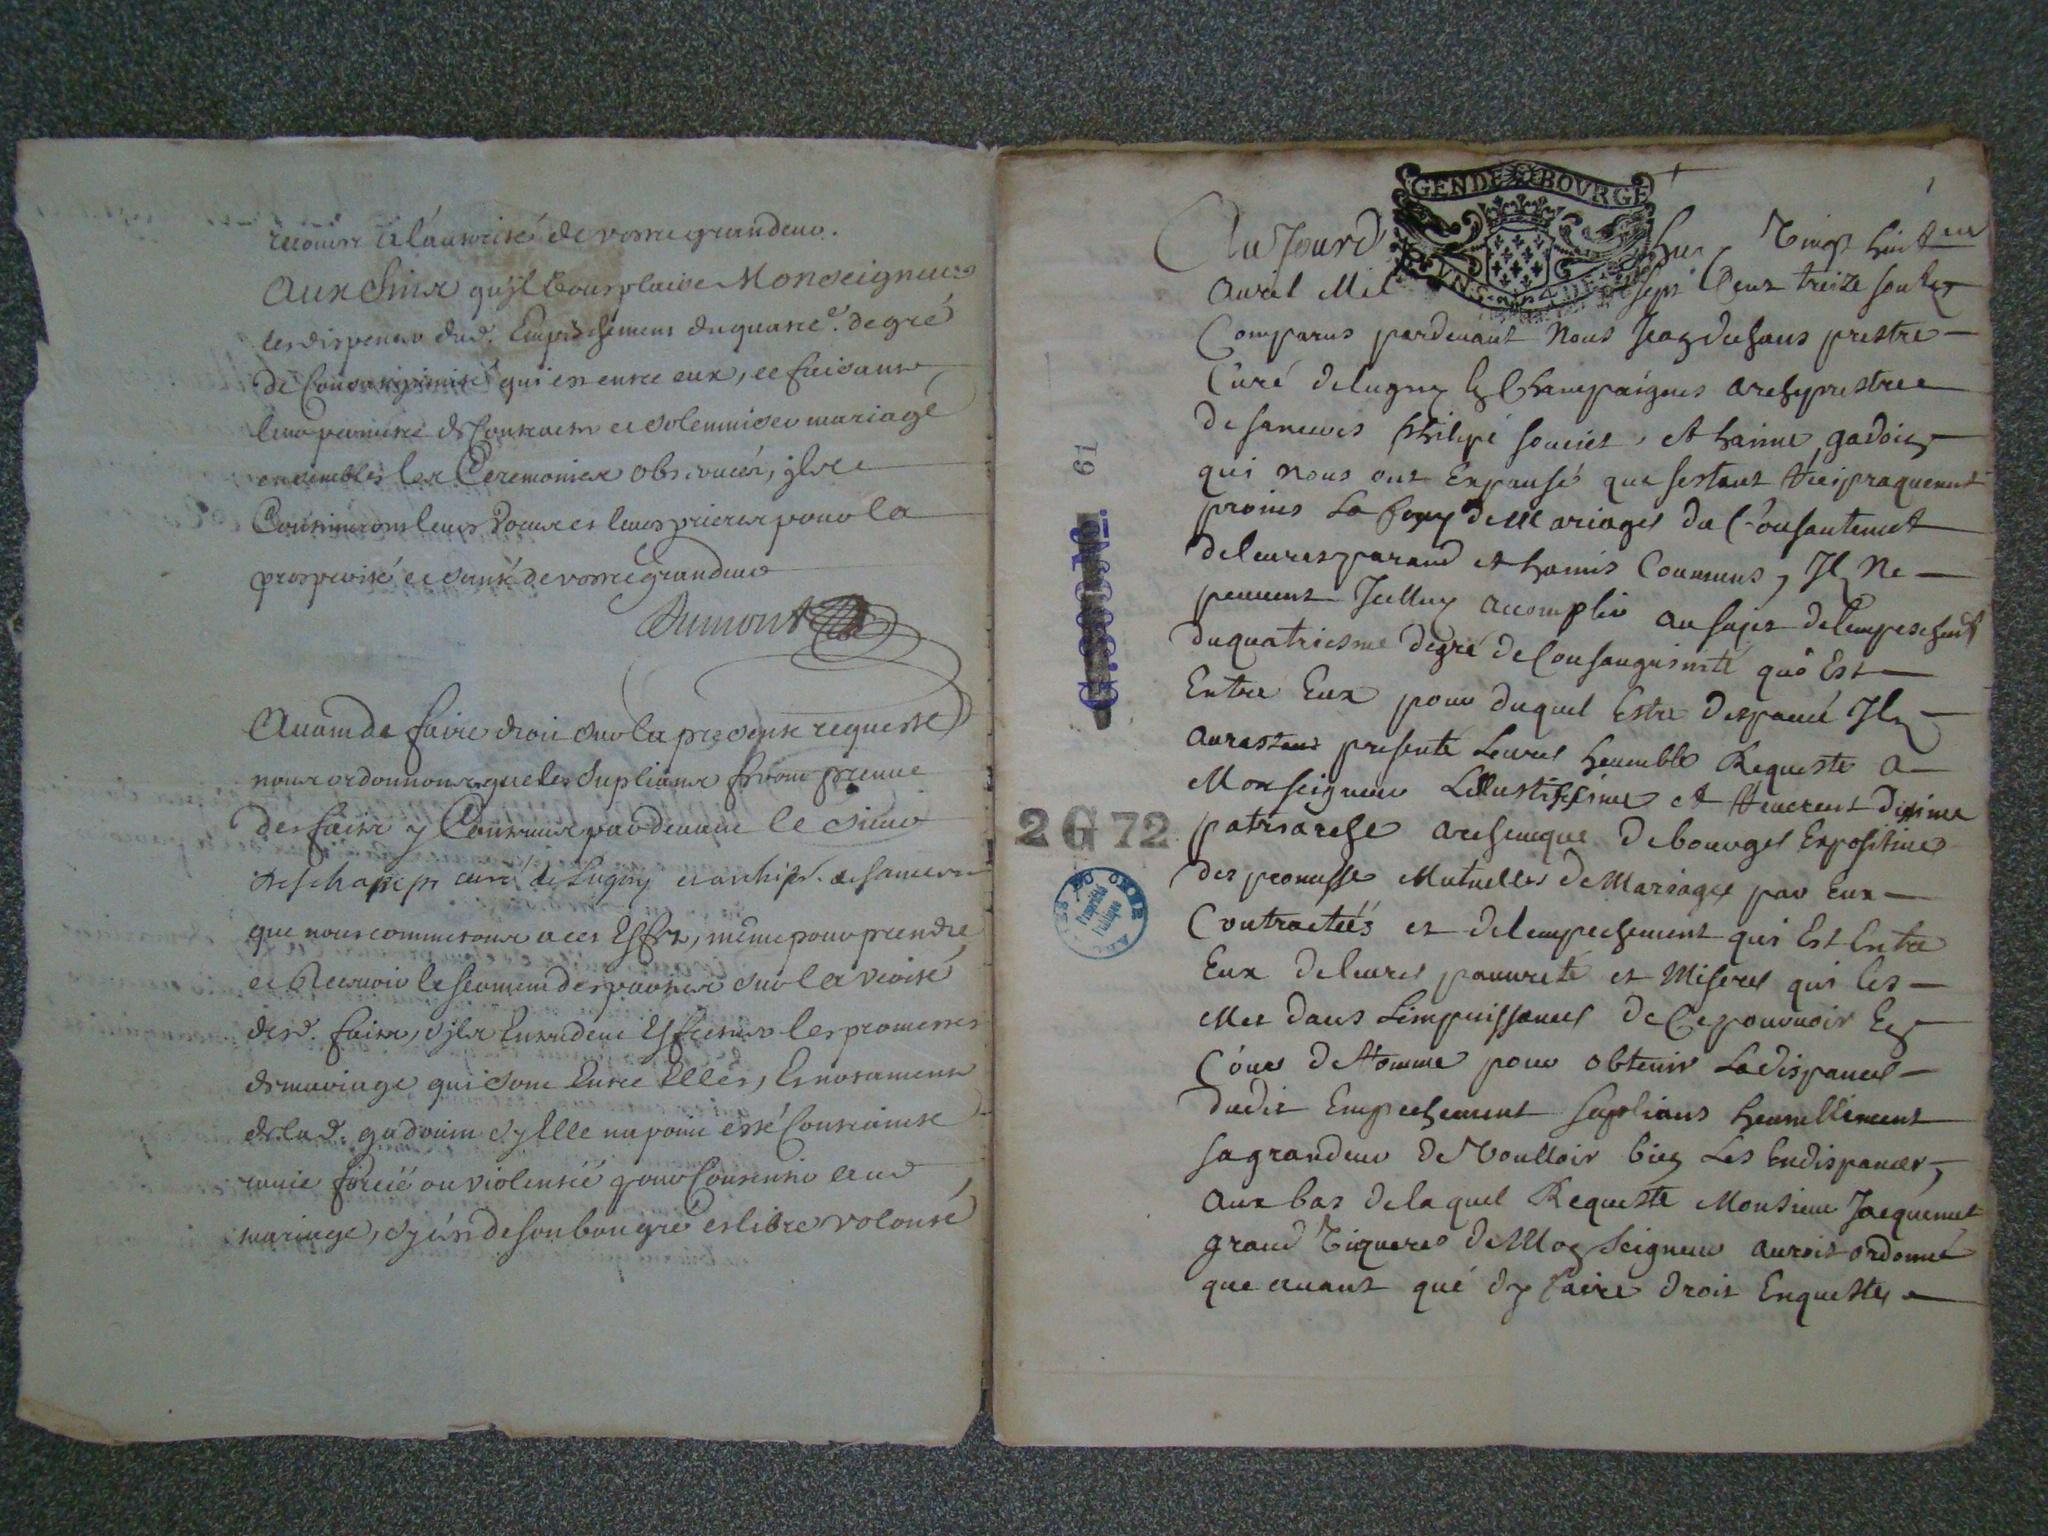 recourir à l'autorité de vostre grandeur.
Aux fins qu'il vous plaise Monseigneur
les dispenser dud. Empeschement du quatre.e degré
de Consanguinité qui est entre eux, ce faisant
leur permettre de Contracter et solemniser mariage
ensembles les Ceremonies observées, ils
Continuront leurs voeux et leurs prieres pour la
prosperité et santé de vostre grandeur
Dumont
Avant de faire droit sur la presente requeste
nous ordonnons que les Suplians feront preuve
des faits y Contenus pardevant le sieur
deschamps curé de Lugny et archip. de sancerre
que nous commetons a cet Effet, même pour prendre
et Recevoir le serment des parties sur la verité
desd. faits, s'ils Entendent Effectuer les promesses
de mariage qui sont Entre Elles, et notament
de lad. gadouin sy Elle na point esté Contrainte
forcéé ou violentéé pour Consentir aud
mariage, sy c'est de son bon gré et libre volonté
GENDE BOURGE
Aujourd'huy vingt huit.me
avril Mil sept Cent treize sont
Comparus pardevant Nous Jean deschans prestre
Curé de lugny Champaignes archyprestre
de sancerre Philipe et hanne gadoin
qui nous ont Expausé que sestant
promis La foy de Mariages du Consantement
de leurs parand et hamis Commens, Il Ne
peuvent Icelluy acomplir au sujet de lempeschemt
du quatriesme degré de Consanguinité qui Est
Entre Eux pour duquel Estre dispancé Ils
auroient presenté Leurs heumble Requeste a
Monseigneur Lillustrissime et Reverent dissime
patriarche archeveque de bourges Expositive
des promesse Mutuelles de Mariages par Eux
Contractéés et de lempechement qui Est Entre
Eux de leures pauvreté et Miseres qui les
Met dans Limpuissances de Ce pourvoir En
Cour de Rome pour obtenir La dispances
dudit Empechement suplians heumblement
sa grandeur de Voulloir bien Les En dispancer,
Aux bas de laquel Requeste Monsieur Jacquemet
grand viquere de Mon seigneur auroit ordonné
que avant que dy faire droit Enqueste
61
G. N°.
2 G 72